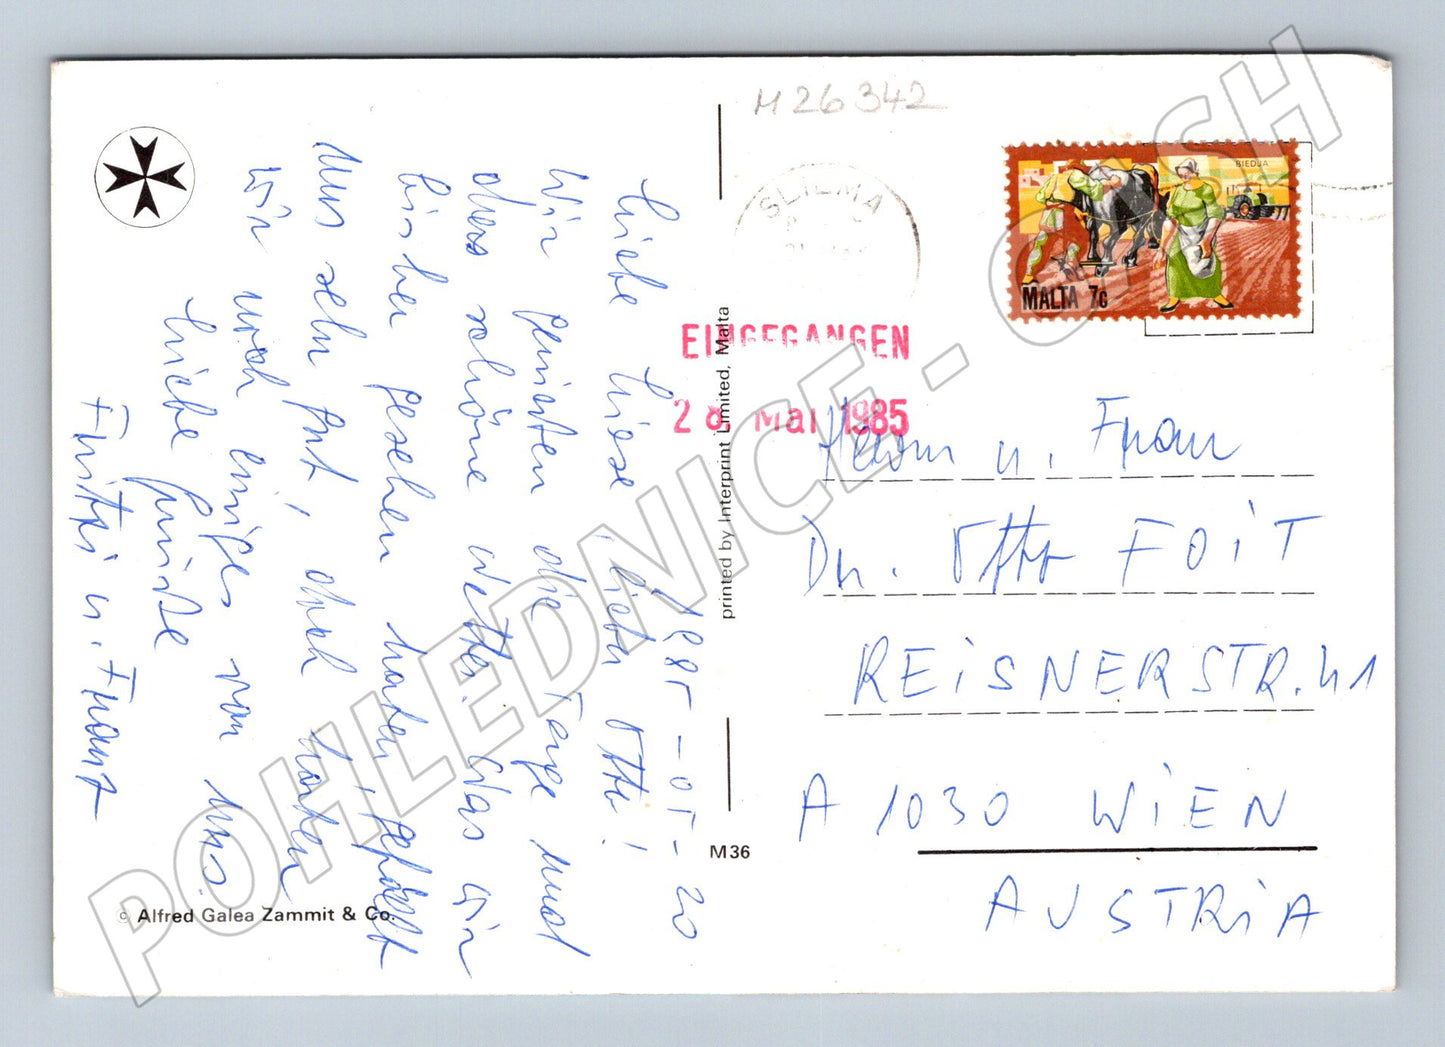 M 26 342
SLIEMA
BIEDJA
MALTA 7c
EINGEGANGEN
28. Mai 1985
1985-05-20
Liebe Liese, lieber Otto!
Wir genießen die Tage und
das schöne Wetter. Was wir
bisher gesehen haben, gefällt
uns sehr gut, doch haben
wir noch einiges vor uns.
Liebe Grüße
Fritzi u. Franz
Herrn u. Frau
Dr. Otto FOIT
REISNERSTR. 41
A 1030 WIEN
AUSTRIA
printed by Interprint Limited, Malta
M36
© Alfred Galea Zammit & Co.
POHLEDNICE - CASH